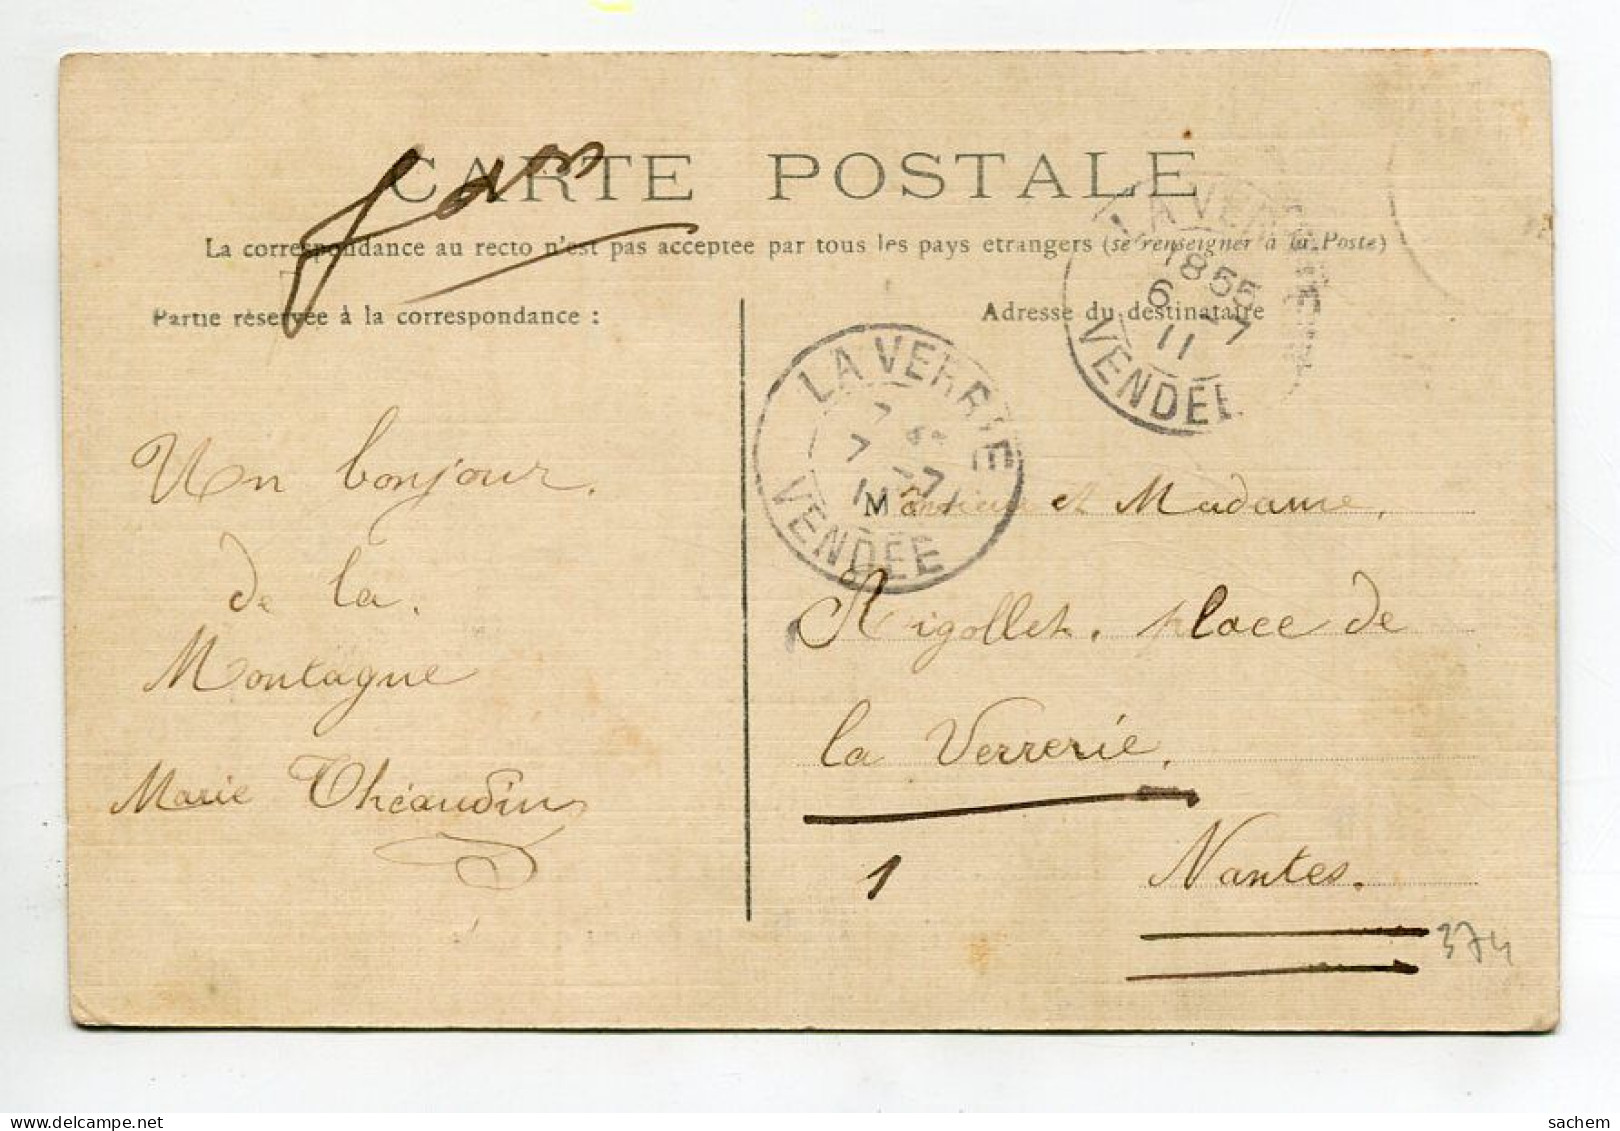 CARTE POSTALE
La correspondance au recto n'est pas acceptee par tous les pays etrangers (se renseigner à la Poste)
Partie réservée à la correspondance :
Adresse du destinataire
LA VERRIE
18 55
6 -7
11
VENDÉE
LA VERRIE
7
7 -7
11
VENDÉE
Un bonjour.
de la.
Montagne
Marie Théaudin
Monsieur et Madame.
Rigollet. place de
la Verrerie.
1
Nantes.
374
Delcampe.net
sachem